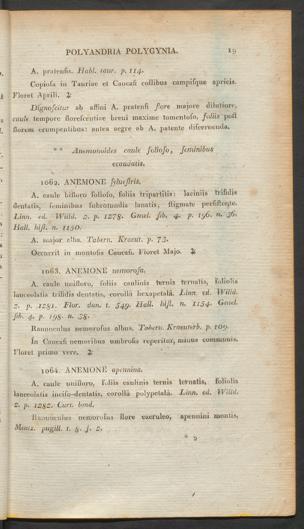 POLYANDRIA POLYGYNIA. 19
A. pratensis. Habl. taur. p. 114.
Copiosa in Tauriae et Caucasi collibus campisque apricis.
Floret Aprili. ♃
Dignoscitur ab affini A. pratensi flore majore dilutiore,
caule tempore florescentiae brevi maxime tomentoso, foliis post
florem erumpentibus: antea aegre ab A. patente discernenda.
** Anemonoides caule folioso, seminibus
ecaudatis.
1062. ANEMONE sylvestris.
A. caule bifloro folioso, foliis tripartitis: laciniis trifidis
dentatis, seminibus subrotundis lanatis, stigmate persistente.
Linn. ed. Willd. 2. p. 1278. Gmel. sib. 4. p. 196. n. 36.
Hall. hist. n. 1150.
A. major alba. Tabern. Kraeut. p. 73.
Occurrit in montosis Caucasi. Floret Majo. ♃
1063. ANEMONE nemorosa.
A. caule unifloro, foliis caulinis ternis ternatis, foliolis
lanceolatis trifidis dentatis, corollâ hexapetalâ. Linn. ed. Willd.
2. p. 1281. Flor. dan. t. 549. Hall. hist. n. 1154. Gmel.
sib. 4. p. 198. n. 38.
Ranunculus nemorosus albus. Tabern. Kraeuterb. p. 109.
In Caucasi nemoribus umbrosis reperitur, minus communis.
Floret primo vere. ♃
1064. ANEMONE apennina.
A. caule unifloro, foliis caulinis ternis ternatis, foliolis
lanceolatis inciso-dentatis, corollâ polypetalâ. Linn. ed. Willd.
2. p. 1282. Curt. lond.
Ranunculus nemorosus flore caeruleo, apennini montis,
Mentz. pugill. t. 8. f. 2.
* 2